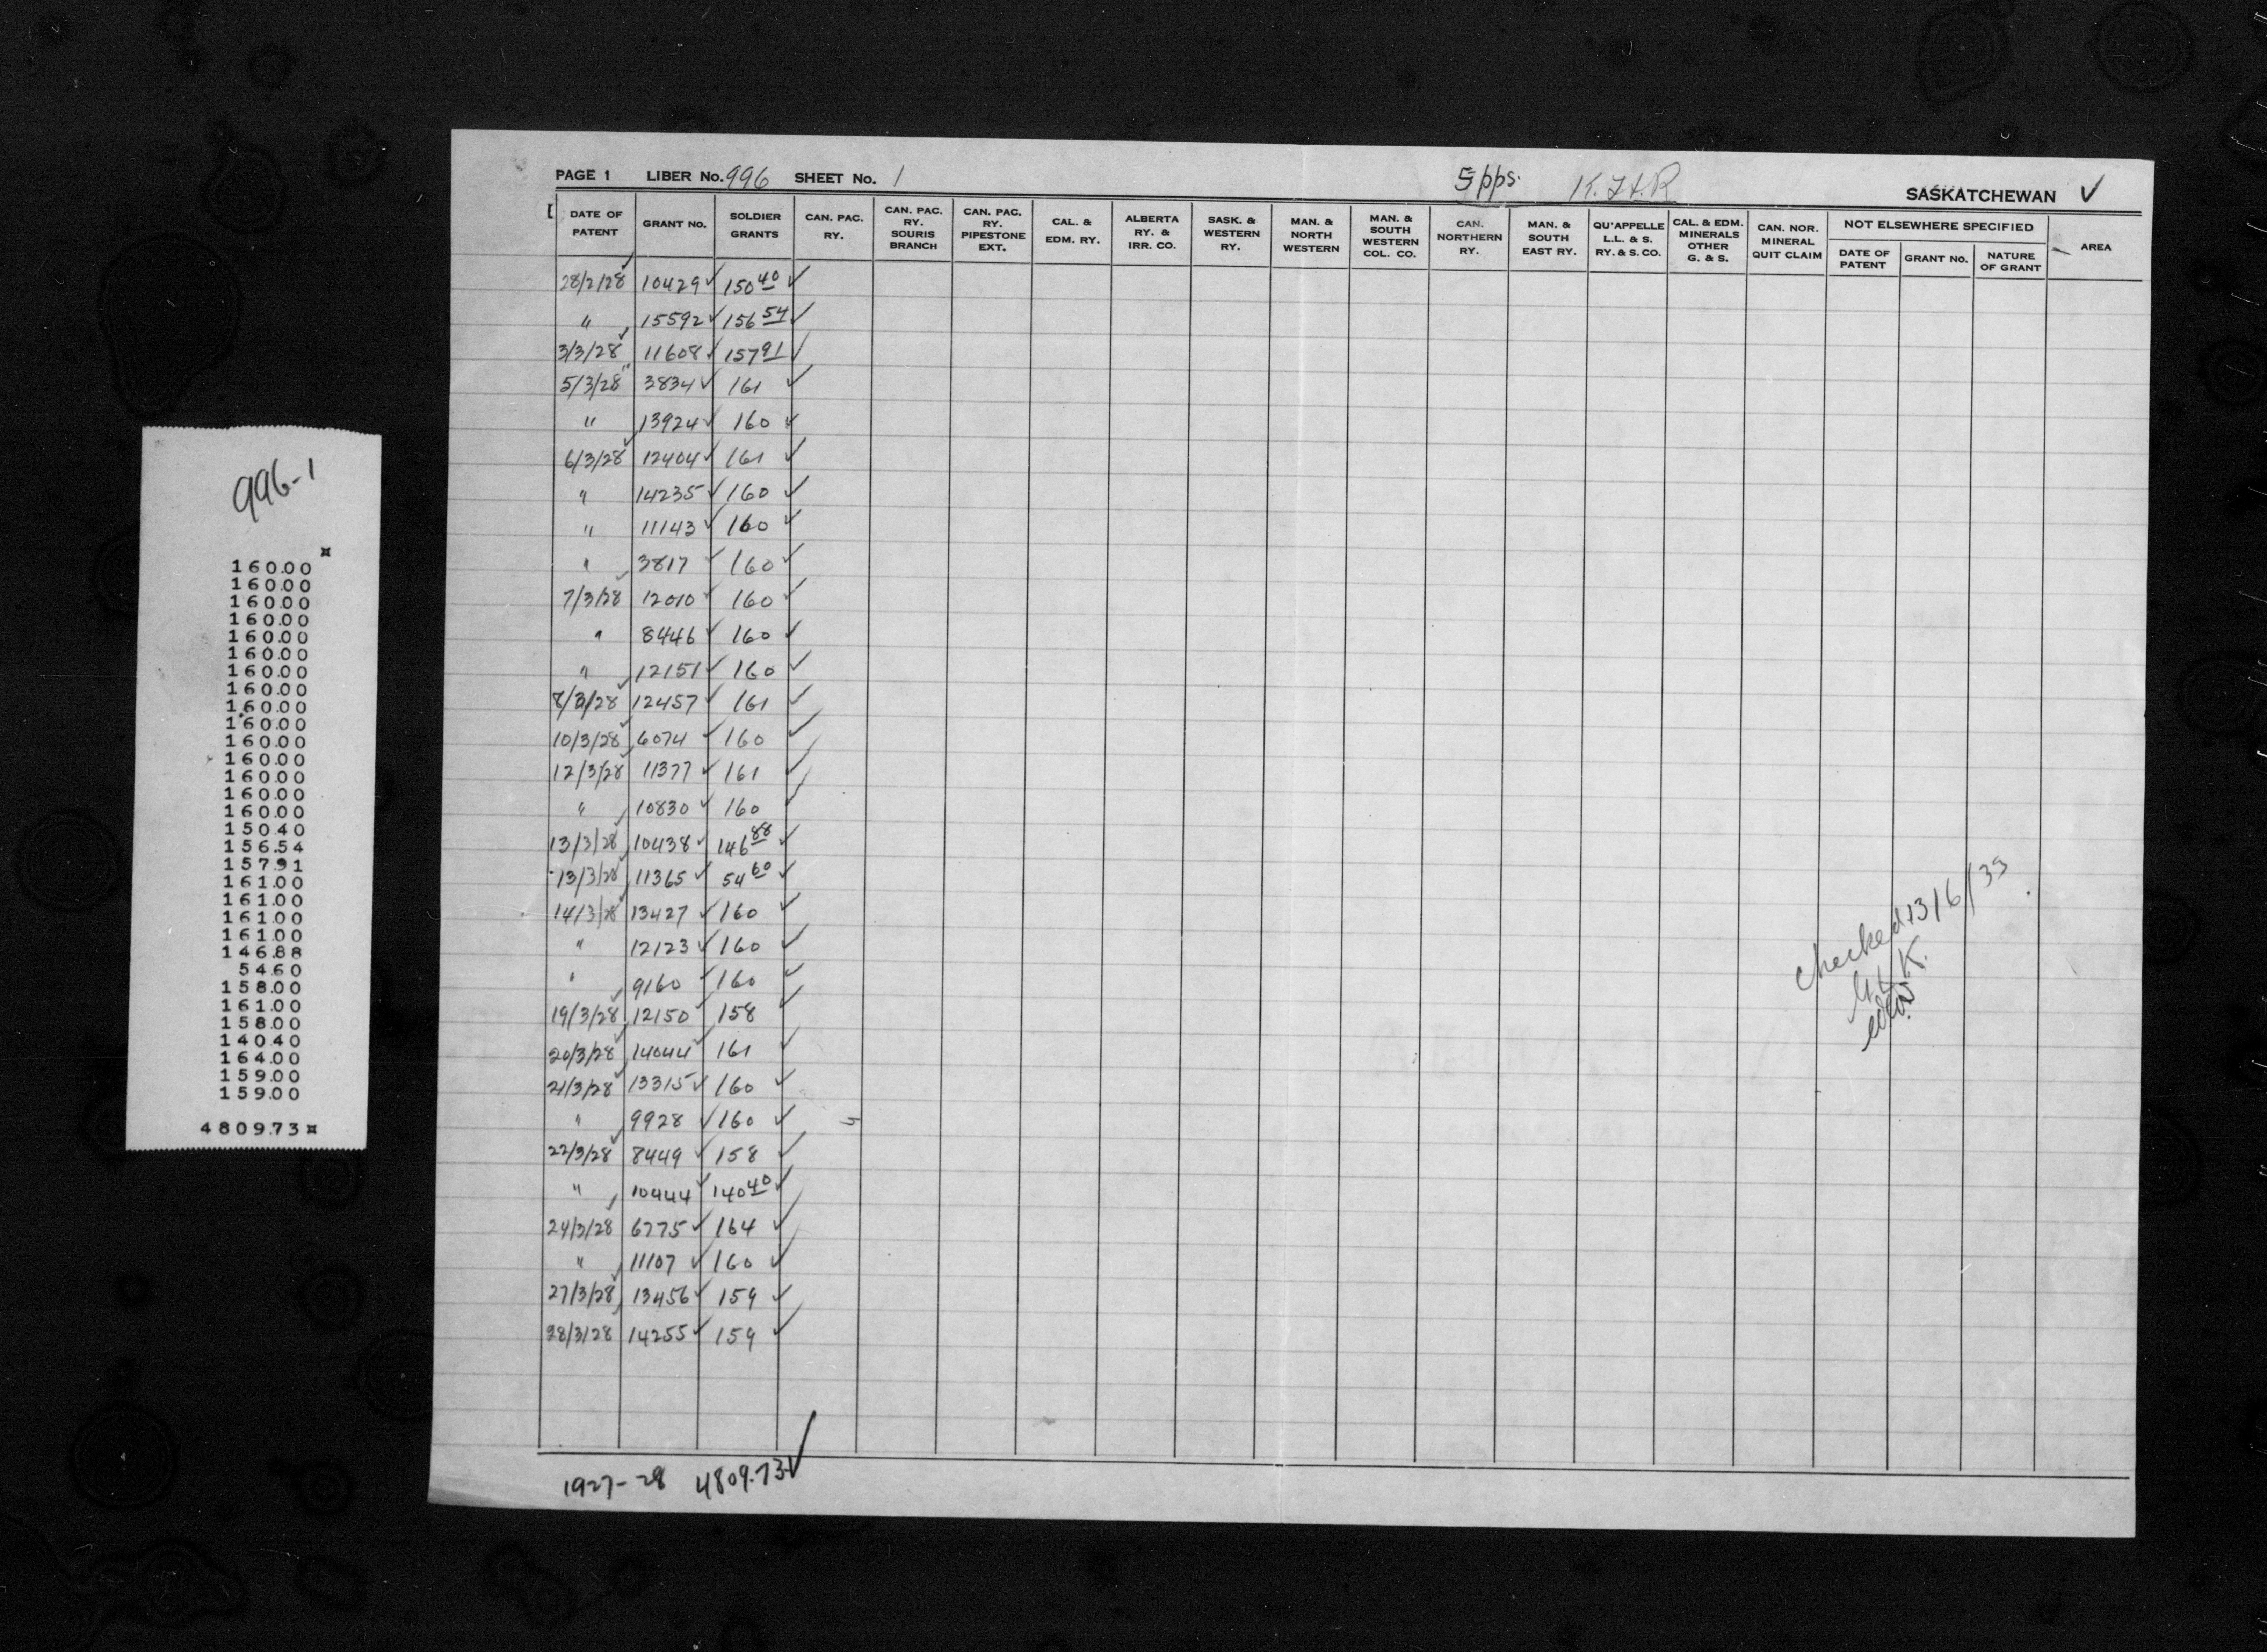 996-1
160.00
160.00
160.00
160.00
160.00
160.00
160.00
160.00
160.00
160.00
160.00
160.00
160.00
160.00
160.00
150.40
156.54
157.91
161.00
161.00
161.00
161.00
146.88
54.60
158.00
161.00
158.00
140.40
164.00
159.00
159.00
4809.73
PAGE 1 LIBER No. 996 SHEET No. 1 5 pps. SASKATCHEWAN ✓
DATE OF PATENT GRANT NO. SOLDIER GRANTS CAN. PAC. RY. CAN. PAC. RY. SOURIS BRANCH CAN. PAC. RY. PIPESTONE EXT. CAL. & EDM. RY. ALBERTA RY. & IRR. CO. SASK. & WESTERN RY. MAN. & NORTH WESTERN MAN. & SOUTH WESTERN COL. CO. CAN. NORTHERN RY. MAN. & SOUTH EAST RY. QU'APPELLE L.L. & S. RY. & S. CO. CAL. & EDM. MINERALS OTHER G. & S. CAN. NOR. MINERAL QUIT CLAIM NOT ELSEWHERE SPECIFIED DATE OF PATENT GRANT NO. NATURE OF GRANT AREA
28/2/28 10429 ✓ 150 40 ✓
" 15592 ✓ 156 54 ✓
3/3/28 11608 ✓ 157 91 ✓
5/3/28 3834 ✓ 161 ✓
" 13924 ✓ 160 ✓
6/3/28 12404 ✓ 161 ✓
" 14235 ✓ 160 ✓
" 11143 ✓ 160 ✓
" 3817 ✓ 160 ✓
7/3/28 12010 ✓ 160 ✓
" 8446 ✓ 160 ✓
" 12151 ✓ 160 ✓
8/3/28 12457 ✓ 161 ✓
10/3/28 6074 ✓ 160 ✓
12/3/28 11377 ✓ 161 ✓
" 10830 ✓ 160 ✓
13/3/28 10438 ✓ 146 88 ✓
13/3/28 11365 ✓ 54 60 ✓
14/3/28 13427 ✓ 160 ✓
" 12123 ✓ 160 ✓
" 9160 ✓ 160 ✓
19/3/28 12150 ✓ 158 ✓
20/3/28 14044 ✓ 161 ✓
21/3/28 13315 ✓ 160 ✓
" 9928 ✓ 160 ✓
22/3/28 8449 ✓ 158 ✓
" 10444 ✓ 140 40 ✓
24/3/28 6775 ✓ 164 ✓
" 11107 ✓ 160 ✓
27/3/28 13456 ✓ 159 ✓
28/3/28 14255 ✓ 159 ✓
checked 13/6/33
1927-28 4809.73 ✓